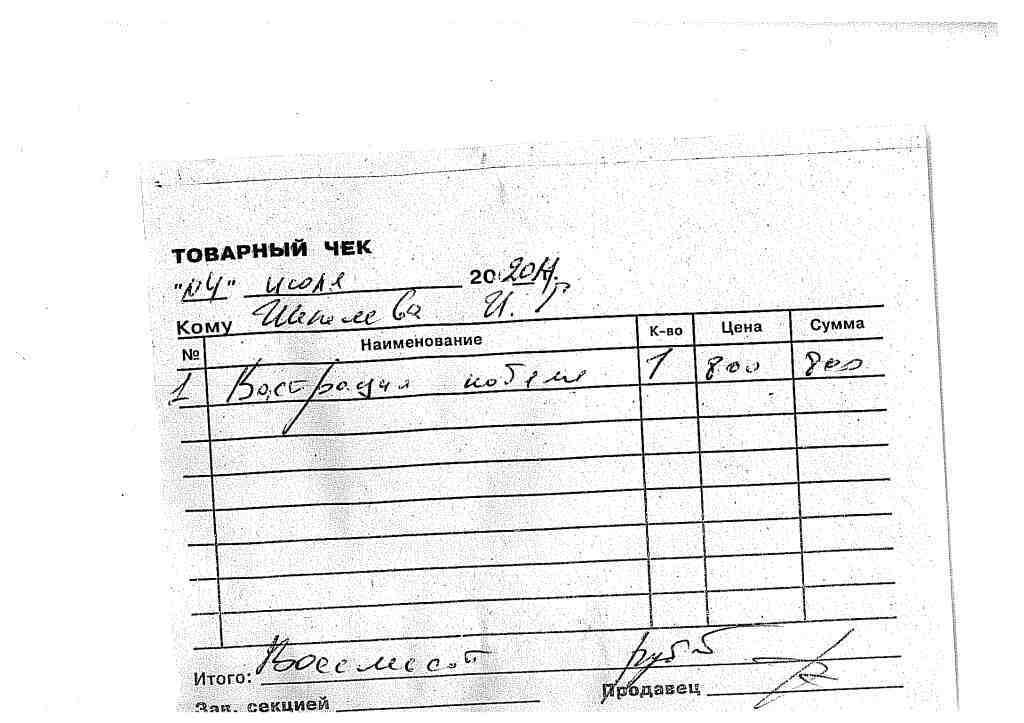 ТОВАРНЫЙ ЧЕК
"04" июля 20 2011.
Кому Шепелева И. Г
№ Наименование К-во Цена Сумма
1 Кастрация кобеля 1 800 800
Итого: Восемьсот руб
Зав. секцией Продавец